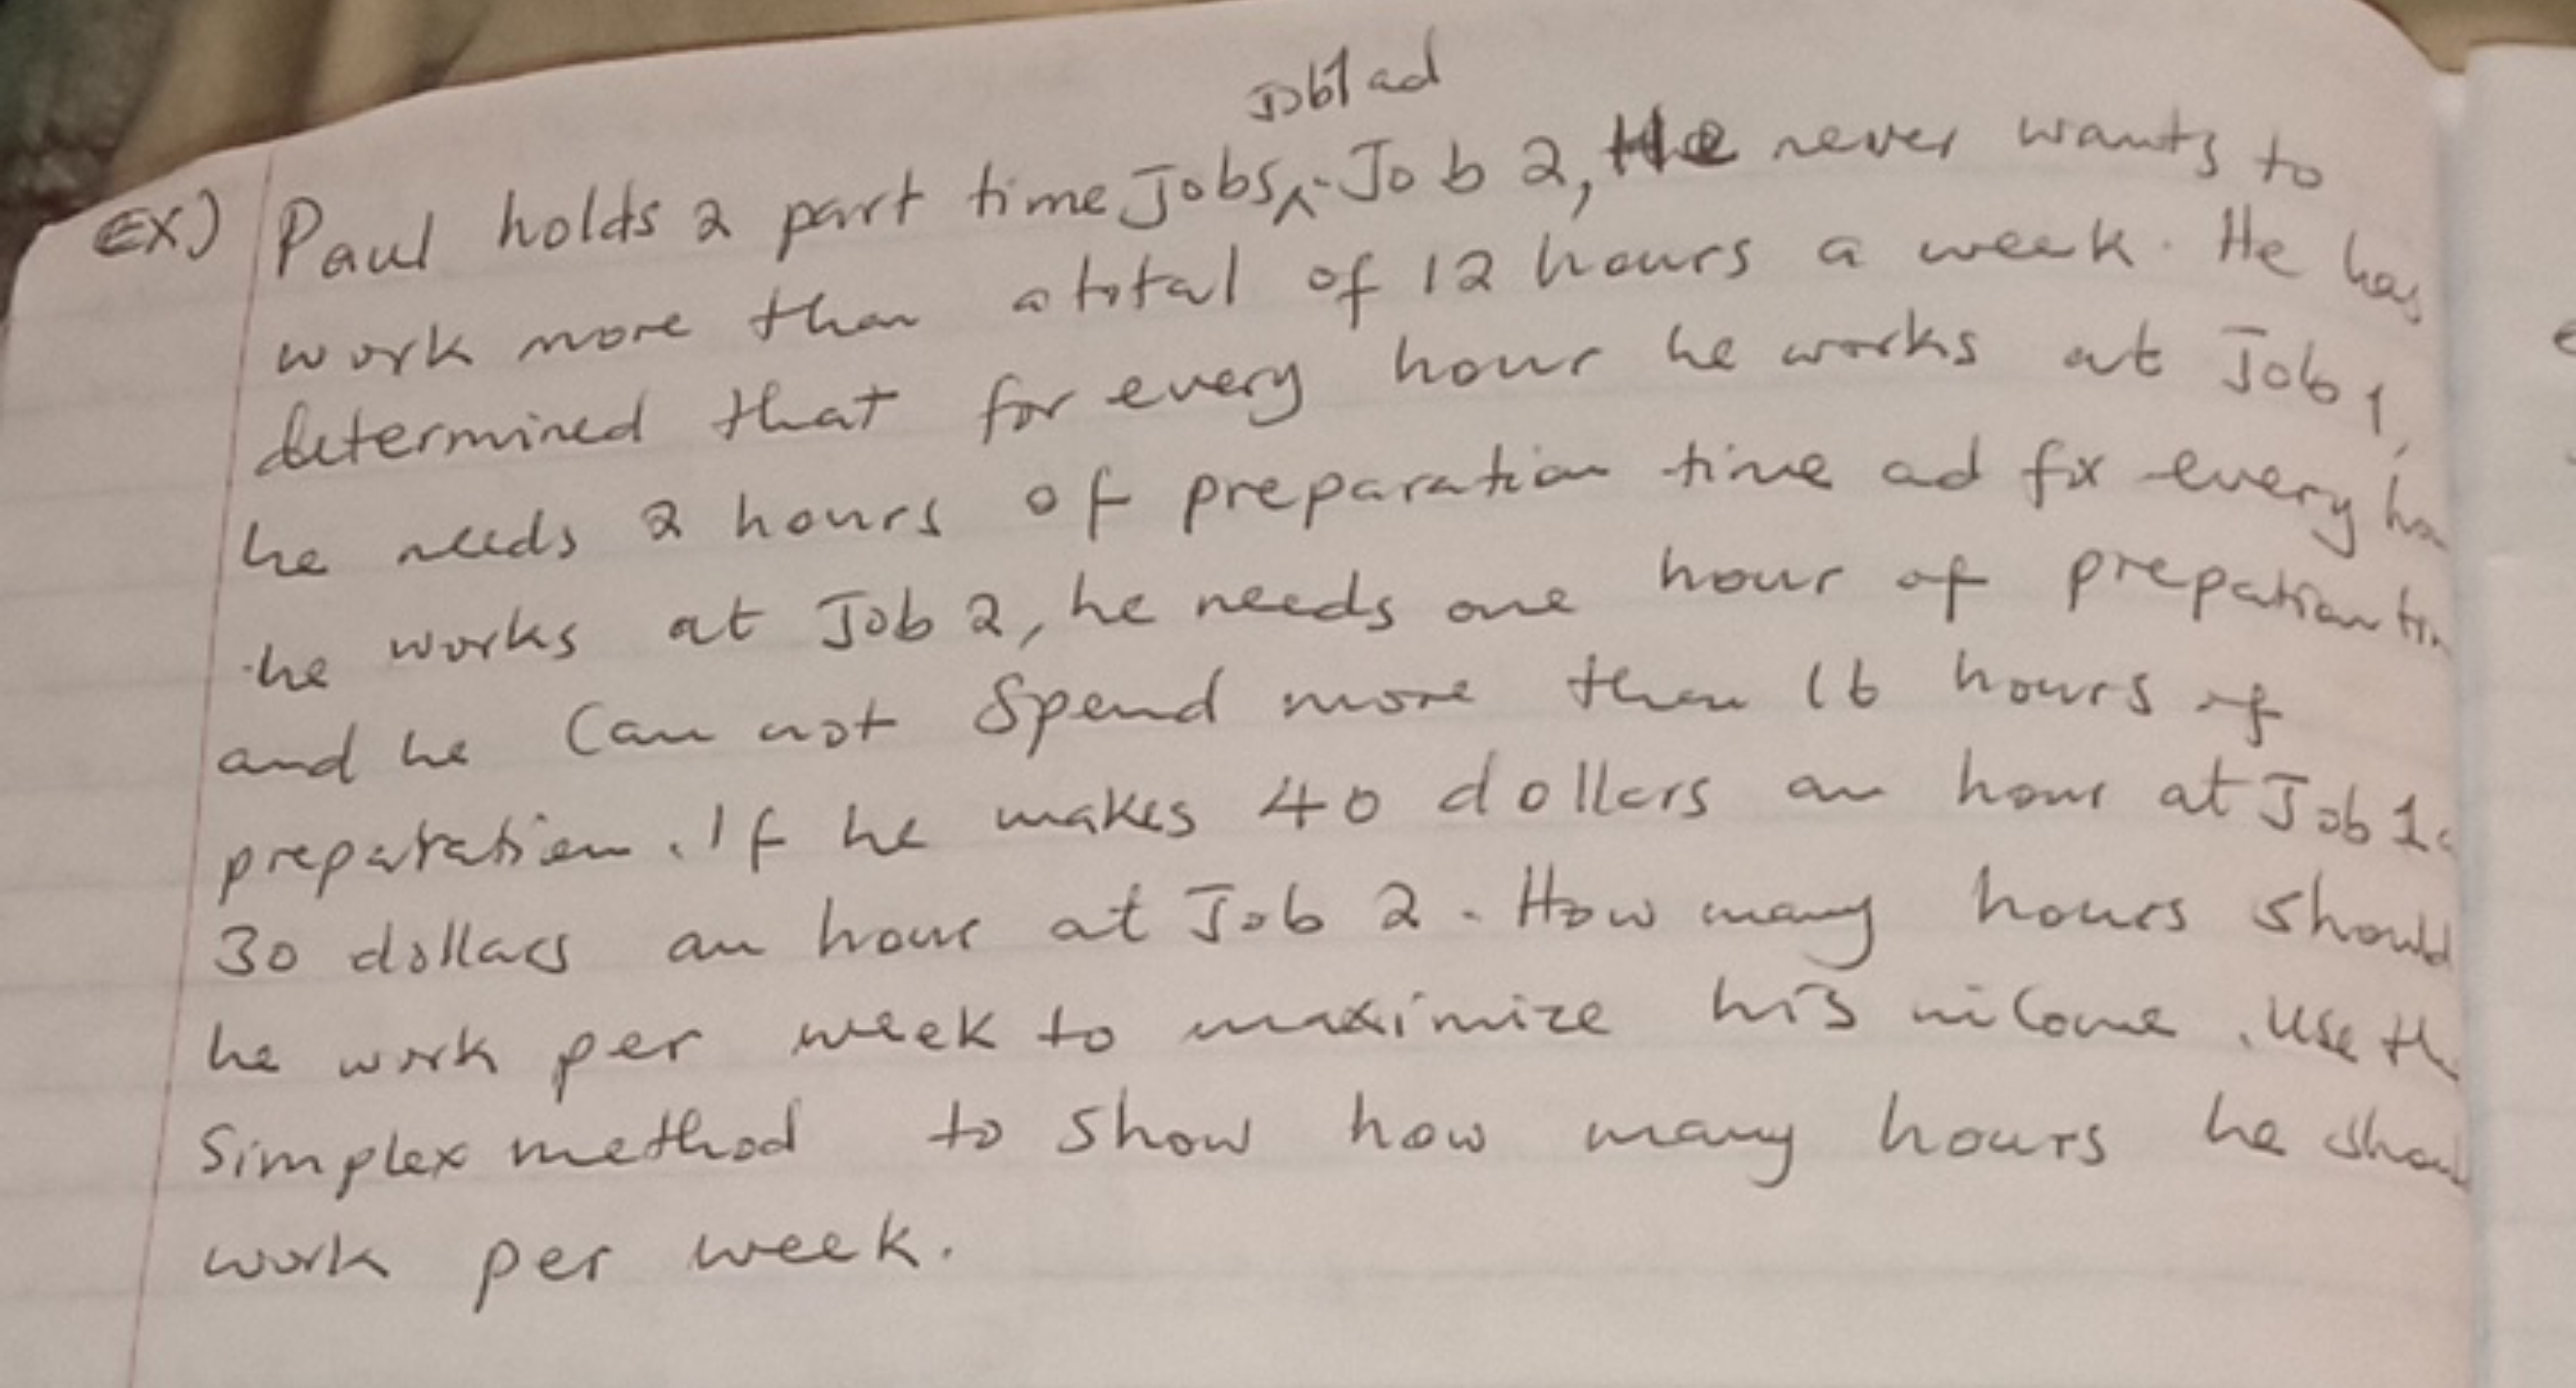 Job1 ad
Ex) Paul holds 2 part time Jobs, Job 2, He never wants to
work more than a total of 12 hours a week. He has
determined that for every hour he works at Job 1,
he needs 2 hours of preparation time ad for every
he works at Job 2, he needs one hour of prepation
and he Can not Spend more than 16 hours of
preparation. If he makes 40 dollars an hour at Job 1
30 dollars an hour at Job 2. How many hours should
he work per week to maximize his income. Use
Simplex method to show how many hours he
work per week.